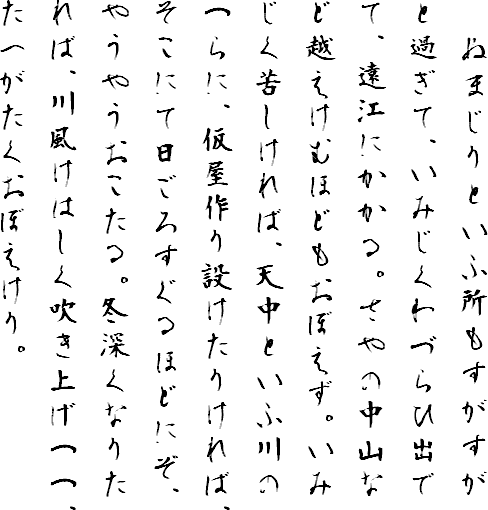 ぬまじりといふ所もすがすが
と過ぎて、いみじくわづらひ出で
て、遠江にかかる。さやの中山な
ど越えけむほどもおぼえず。いみ
じく苦しければ、天中といふ川の
つらに、仮屋作り設けたりければ、
そこにて日ごろすぐるほどにぞ、
やうやうおこたる。冬深くなりた
れば、川風けはしく吹き上げつつ、
たへがたくおぼえけり。